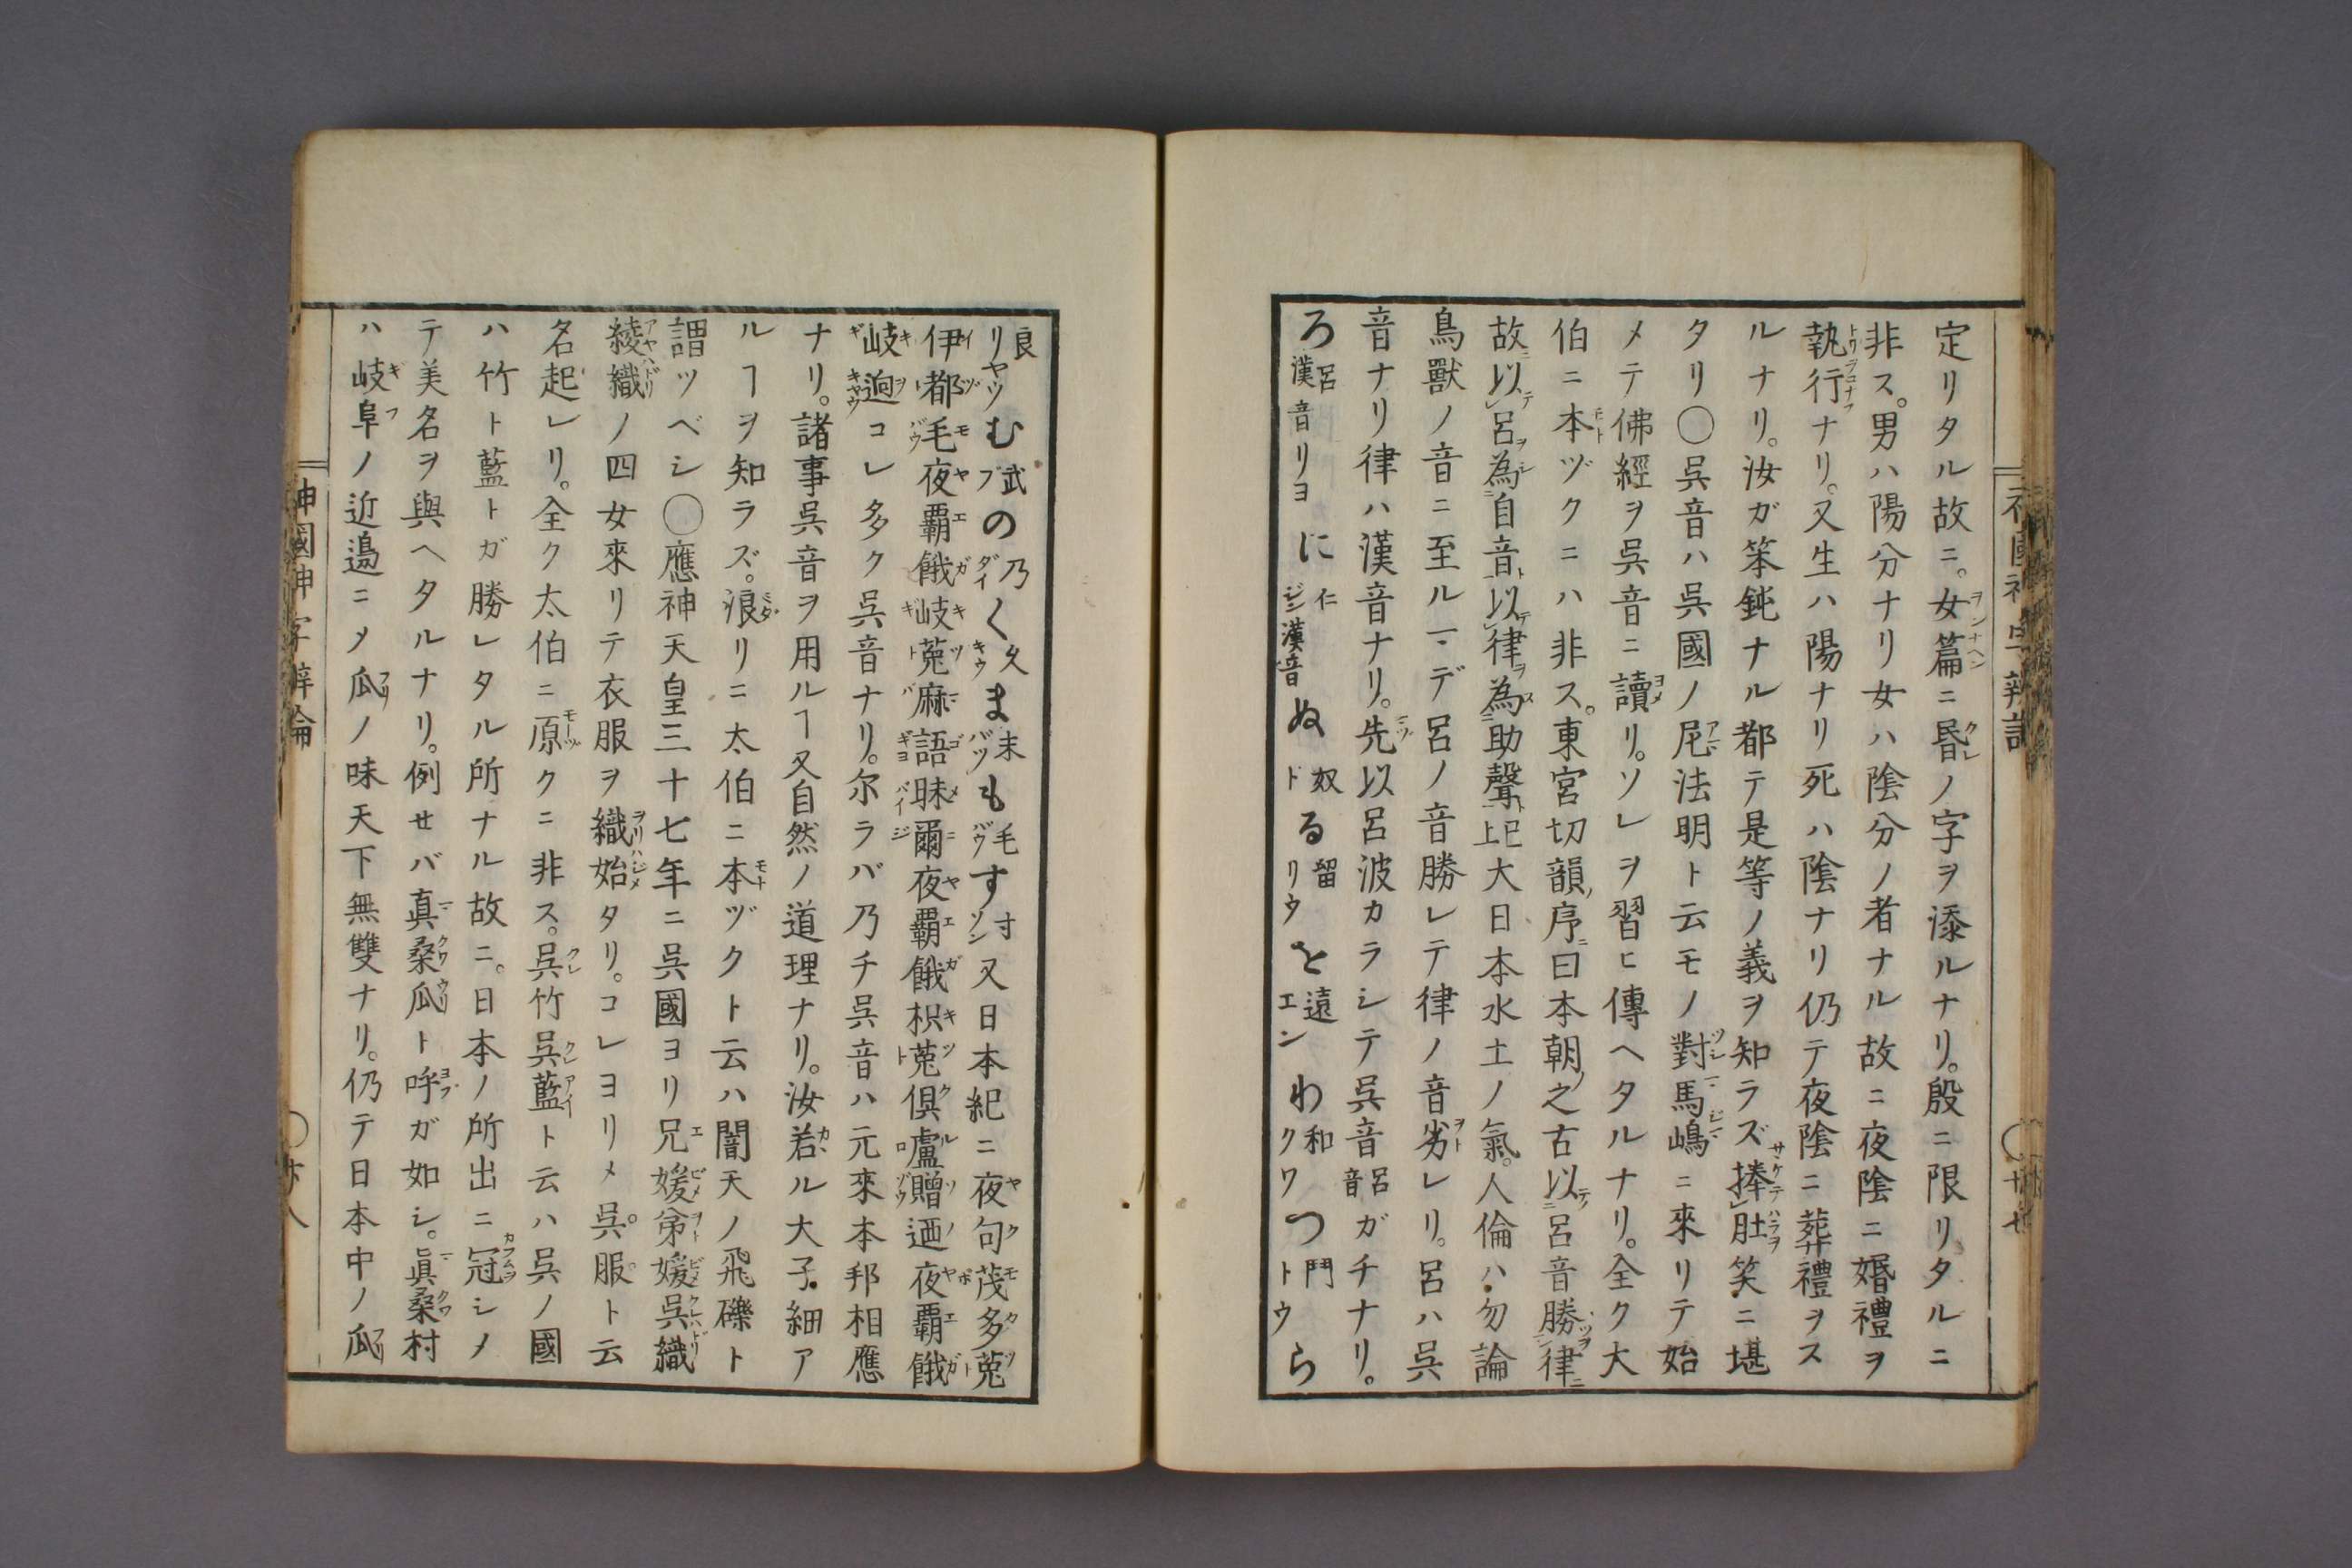 定リタル故ニ。女篇ニ昏ノ字ヲ添ルナリ。殷ニ限リタルニ
非ス。男ハ陽分ナリ女ハ陰分ノ者ナル故ニ夜陰ニ婚禮ヲ
執行ナリ。又生ハ陽ナリ死ハ陰ナリ仍テ夜陰ニ葬禮ヲス
ルナリ。汝ガ笨鈍ナル都テ是等ノ義ヲ知ラズ捧肚笑ニ堪
タリ〇呉音ハ呉國ノ尼法明ト云モノ對馬嶋ニ來リテ始
メテ佛經ヲ呉音ニ讀リ。ソレヲ習ヒ傳ヘタルナリ。全ク大
伯ニ本ヅクニハ非ス。東宮切韻序曰本朝之古以呂音勝律
故以呂為自音以律為助聲上巳大日本水土ノ氣。人倫ハ勿論
鳥獸ノ音ニ至ルマデ呂ノ音勝レテ律ノ音劣レリ。呂ハ呉
音ナリ律ハ漢音ナリ。先以呂波カラシテ呉音呂音ガチナリ。
ろ呂漢音リヨに仁ジン漢音ぬ奴ドる留リウを遠エンわ和クワつ鬥トウら
良リヤウむ武ブの乃ダイく久キウま末バツも毛バウす寸ソン又日本紀ニ夜句茂多菟
伊都毛夜覇餓岐菟麻語昧爾夜覇餓枳菟倶盧贈迺夜覇餓
岐逈コレ多ク呉音ナリ。尔ラバ乃チ呉音ハ元來本邦相應
ナリ。諸事呉音ヲ用ルヿ又自然ノ道理ナリ。汝若ル大子細ア
ルヿヲ知ラズ。浪リニ太伯ニ本ヅクト云ハ闇天ノ飛礫ト
謂ツベシ〇應神天皇三十七年ニ呉國ヨリ兄媛弟媛呉織
綾織ノ四女來リテ衣服ヲ織始タリ。コレヨリメ呉服ト云
名起レリ。全ク太伯ニ原クニ非ス。呉竹呉藍ト云ハ呉ノ國
ハ竹ト藍トガ勝レタル所ナル故ニ。日本ノ所出ニ冠シメ
テ美名ヲ與ヘタルナリ。例セバ真桑瓜ト呼ガ如シ。眞桑村
ハ岐阜ノ近邉ニメ瓜ノ味天下無雙ナリ。仍テ日本中ノ瓜
神國神字辨論
〇廿八